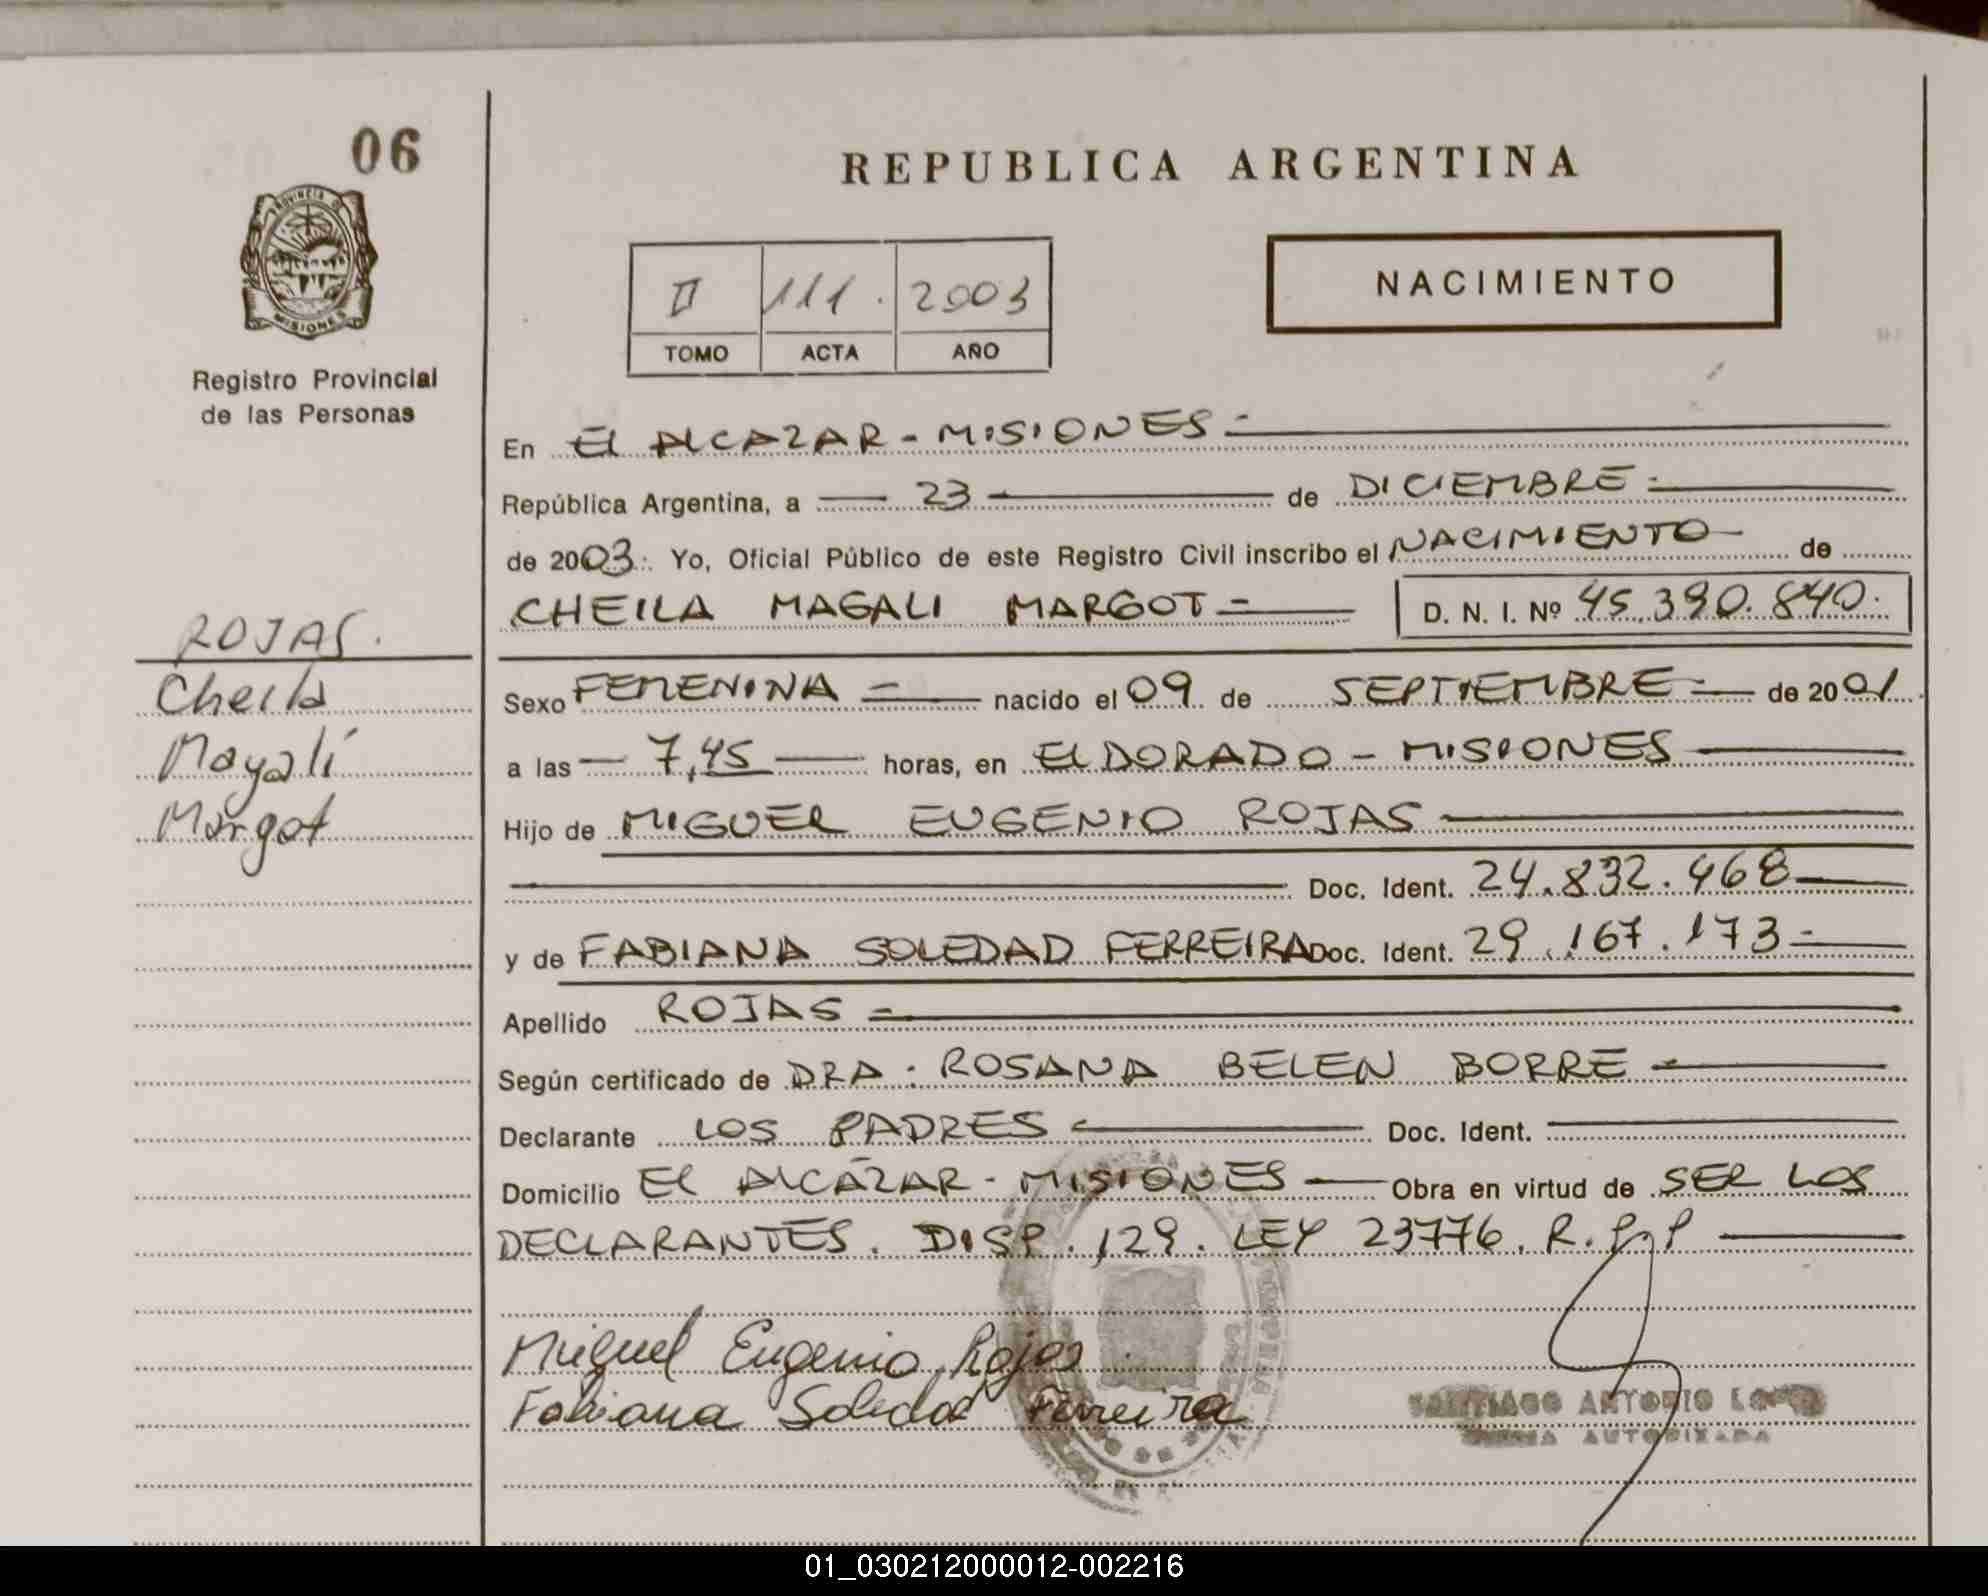 06
PROVINCIA DE
MISIONES
Registro Provincial
de las Personas
ROJAS.
Cheila
Magalí
Margot
REPUBLICA ARGENTINA
II 111. 2003
TOMO ACTA AÑO
NACIMIENTO
En El ALCAZAR - MISIONES -
República Argentina, a — 23 — de DICIEMBRE -
de 2003. Yo, Oficial Público de este Registro Civil inscribo el NACIMIENTO de
CHEILA MAGALI MARGOT - D. N. I. Nº 45.390.840.
Sexo FEMENINA - nacido el 09 de SEPTIEMBRE - de 2001
a las — 7,45 — horas, en ElDORADO - MISIONES
Hijo de MIGUEL EUGENIO ROJAS
Doc. Ident. 24.832.468
y de FABIANA SOLEDAD FERREIRA Doc. Ident. 29.167.173 -
Apellido ROJAS -
Según certificado de DRA. ROSANA BELEN BORRE -
Declarante LOS PADRES Doc. Ident.
Domicilio El ALCÁZAR - MISIONES — Obra en virtud de SER LOS
DECLARANTES. DISP. 129. LEY 23776. R.P.P
Miguel Eugenio Rojas
Fabiana Soledad Ferreira
SANTIAGO ANTONIO
AUTORIZADA
01_030212000012-002216